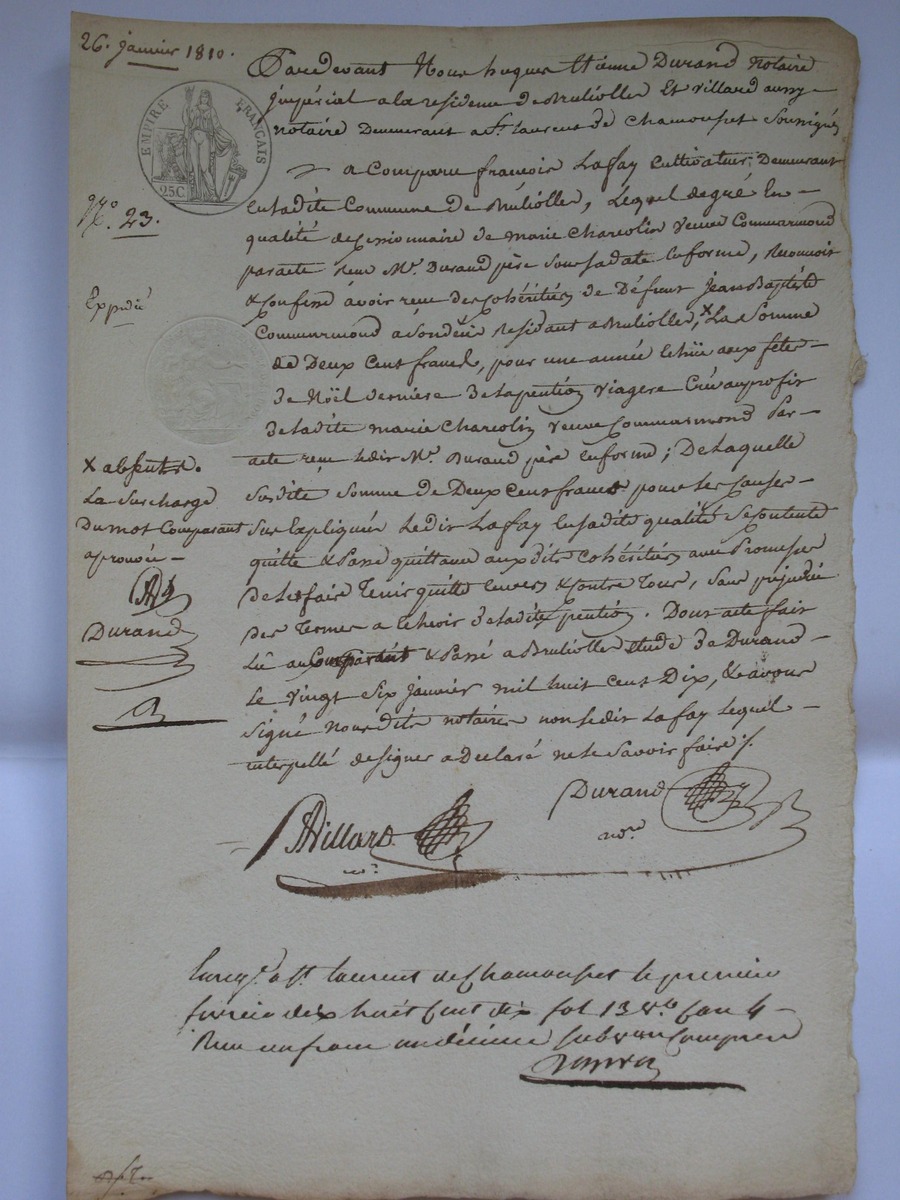 26. janvier 1810.
EMPIRE FRANÇAIS
25C
Pardevant Nous hugues Etienne Durand Notaire
jmpérial a la residence de Brulliolles Et Villard aussy
notaire Demeurant a St. Laurent de Chamousset Soussignés
a Comparu françois Lafay Cultivateur Demeurant
N.o 23.
en ladite Commune de Brulliolles, Lequel de gré En
qualité de Cessionnaire de marie Charcolin veuve Commarmond
par acte reçu Mr. Durand père sous sa date En forme, Reconnoit
Expédié
& Confesse avoir reçu des Cohéritiers de Défunt Jean Baptiste
Commarmond a son décès Résidant a Brulliolles, x La Somme
de Deux Cent francs, pour une année échüe aux fêtes
de Noël dernière de la pention viagere Créé au profit
de ladite marie Charcolin veuve Commarmond Par
x absents.
acte reçu ledit Mr. Durand père en forme; De Laquelle
La Surcharge
susdite Somme de Deux Cent francs pour les Causes
Du mot Comparant
Sus Expliquées Ledit Lafay En sadite qualité Se Contente
aprouvée
quitte & Passe quittance auxdits Cohéritiers avec Promesse
De les faire Tenir quitte Envers & Contre Tous, Sans préjudice
Durand
Des Termes a Echeoir de ladite pention. Dont acte fait
Lû au Comparant & Passé a Brulliolles Etude de Durand
Le vingt Six janvier mil huit Cent Dix, & avons
Signé Nous dits notaires non ledit Lafay Lequel
interpellé de signer a Declaré ne le Savoir faire ./.
Durand
nore
Villard
nre
Enregt. a St. Laurent de Chamousset le premier
fevrier dix huit Cent dix fol 13 Vo Case 4
Reçu un franc un décime subvon Comprise